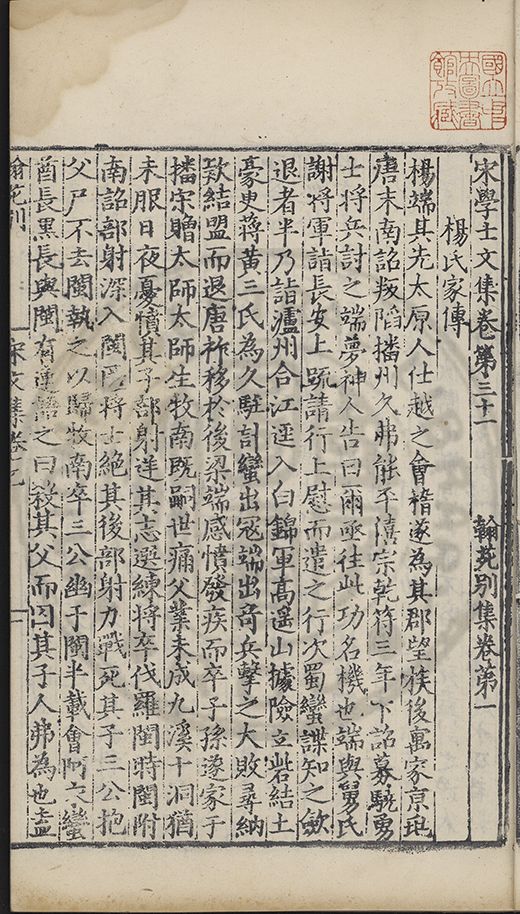 國立中央圖書館收藏
宋學士文集卷第三十一 翰苑別集卷第一
楊氏家傳
楊端其先太原人仕越之會稽遂為其郡望族後寓家京兆
唐末南詔叛陷播州久弗能平僖宗乾符三年下詔募驍勇
士將兵討之端夢神人告曰爾亟往此功名機也端與舅氏
謝將軍詣長安上疏請行上慰而遣之行次蜀蠻諜知之歛
退者半乃詣瀘州合江逕入白錦軍高遥山據險立砦結土
豪臾蔣黃三氏為久駐計蠻出寇端出奇兵擊之大敗尋納
欵結盟而退唐祚移於後梁端感憤發疾而卒子孫遂家于
播宋贈太師太師生牧南既嗣世痛父業未成九溪十洞猶
未服日夜憂憤其子部射迷其志選練將卒伐羅閩時閩附
南詔部射深入閩 將士絕其後部射力戰死其子三公抱
父尸不去閩執之以歸牧南卒三公幽于閩半載會阿 蠻
酋長黑長與閩有連語之曰殺其父而囚其子人弗為也盍
翰苑別 宋文集卷 一